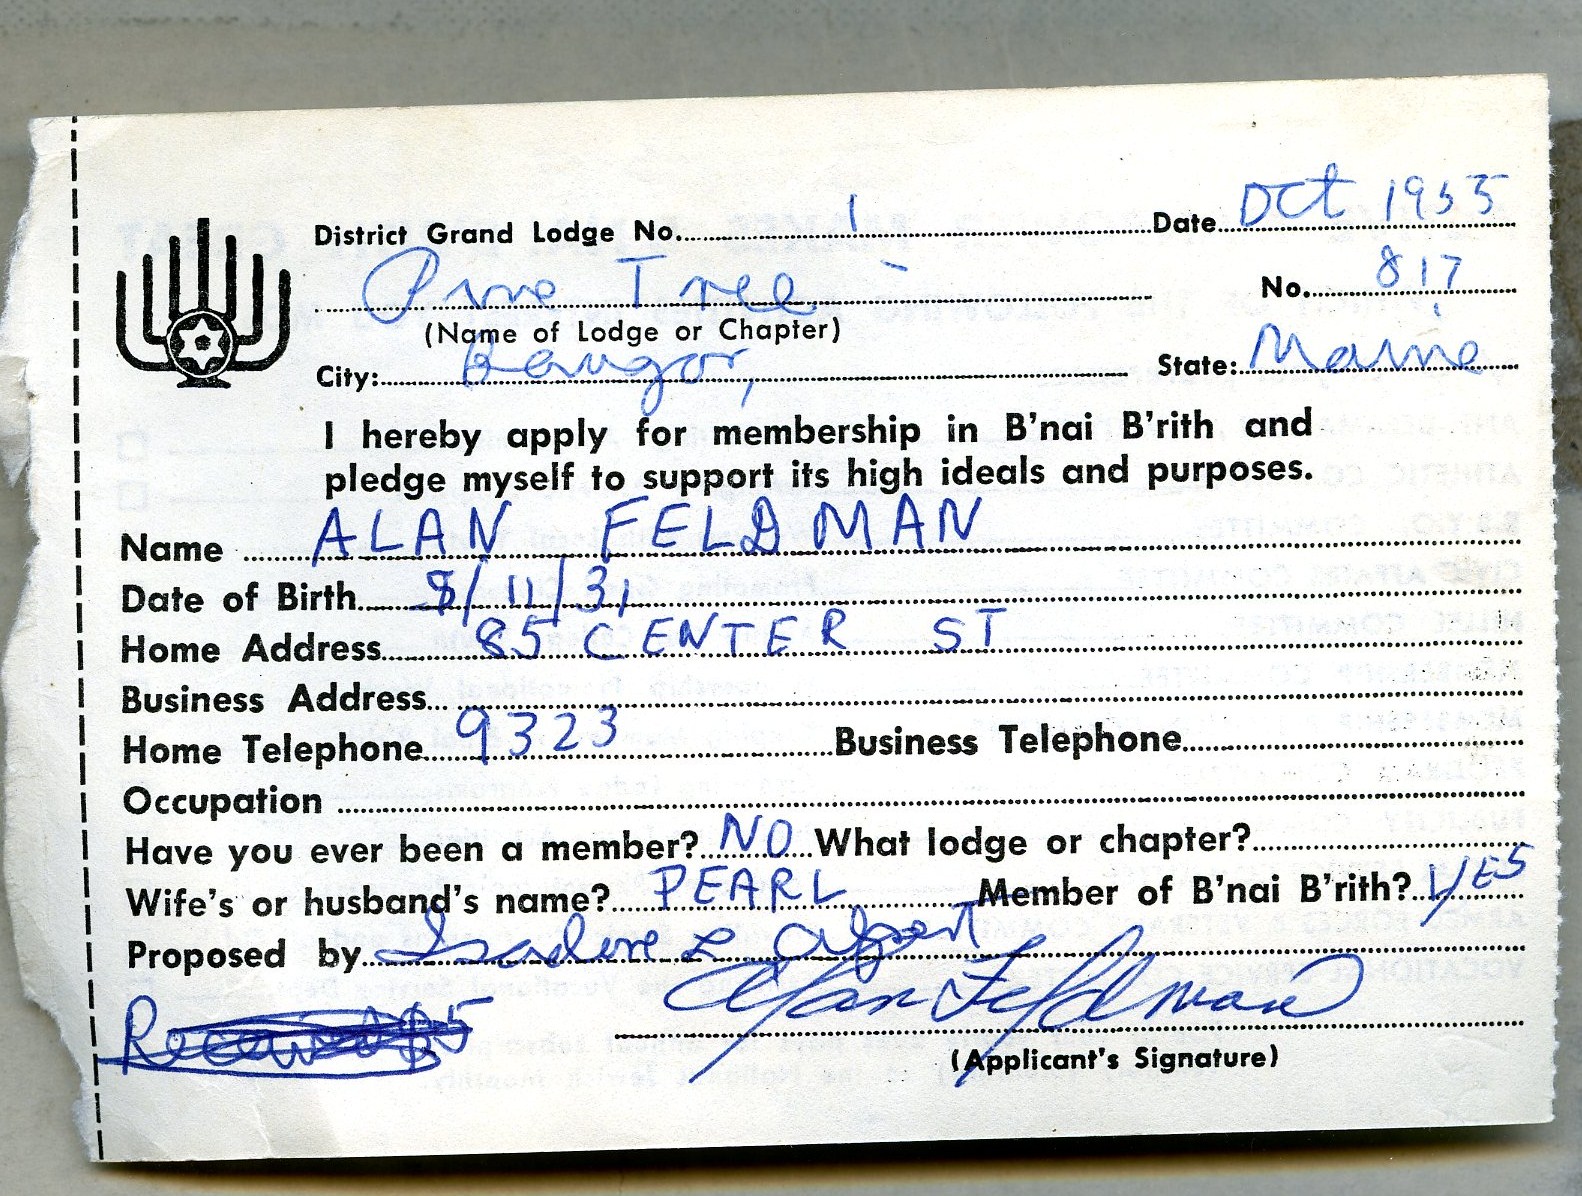 District Grand Lodge No. 1 Date Oct 1955
Pine Tree No. 817
(Name of Lodge or Chapter)
City: Bangor, State: Maine
I hereby apply for membership in B'nai B'rith and
pledge myself to support its high ideals and purposes.
Name ALAN FELDMAN
Date of Birth 8/11/31
Home Address 85 CENTER ST
Business Address
Home Telephone 9323 Business Telephone
Occupation
Have you ever been a member? NO What lodge or chapter?
Wife's or husband's name? PEARL Member of B'nai B'rith? YES
Proposed by Isadore L Alpert
Alan Feldman
Received $5
(Applicant's Signature)